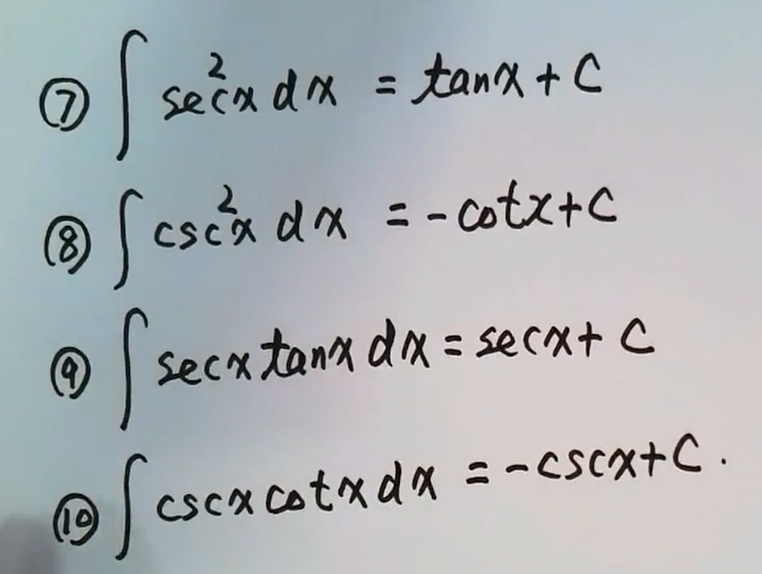 ⑦ ∫ sec²x dx = tanx + C
⑧ ∫ csc²x dx = -cotx+C
⑨ ∫ secx tanx dx = secx+ C
⑩ ∫ cscx cotx dx = -cscx+C.